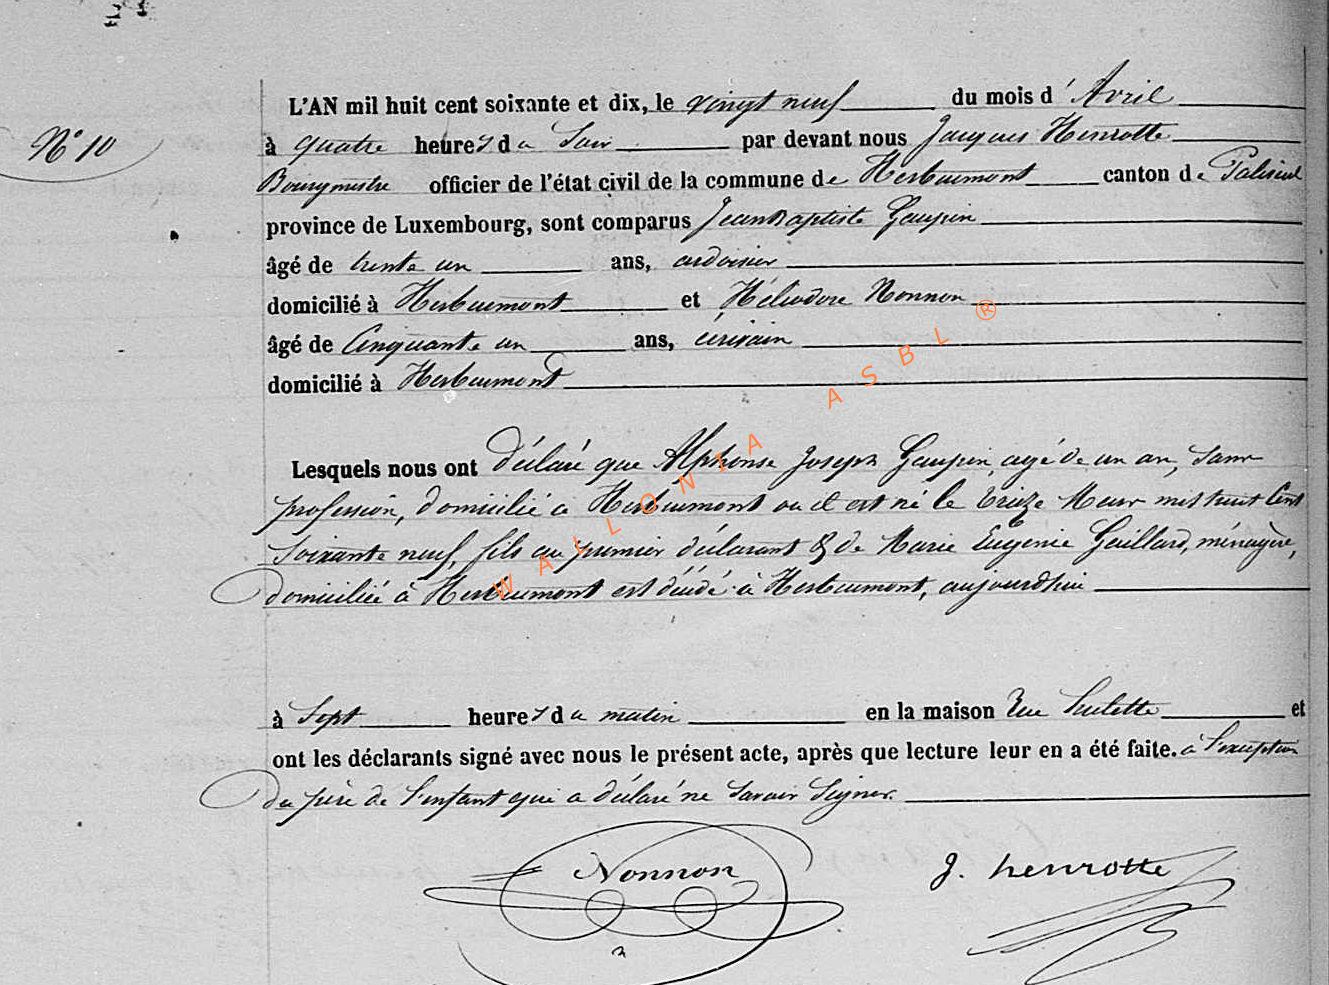 N° 10
L'AN mil huit cent soixante et dix, le vingt neuf du mois d'Avril
à quatre heures du Soir par devant nous Jacques Henrotte
Bourgmestre officier de l'état civil de la commune de Herbeumont canton de Paliseul
province de Luxembourg, sont comparus Jean Baptiste Gaupin
âgé de trente un ans, ardoisier
domicilié à Herbeumont et Héliodore Nonnon
âgé de Cinquante un ans, écrivain
domicilié à Herbeumont
Lesquels nous ont déclaré que Alphonse Joseph Gaupin, agé de un an, sans
profession, domicilié à Herbeumont où il est né le treize Mars mil huit Cent
soixante neuf, fils du premier déclarant & de Marie Eugenie Gaillard, ménagère,
domiciliée à Herbeumont est décédé à Herbeumont, aujourd'hui
à Sept heures du matin en la maison Rue et
ont les déclarants signé avec nous le présent acte, après que lecture leur en a été faite. à l'exception
du père de l'enfant qui a déclaré ne savoir Signer.
Nonnon J. henrotte
WALLONIA ASBL ®